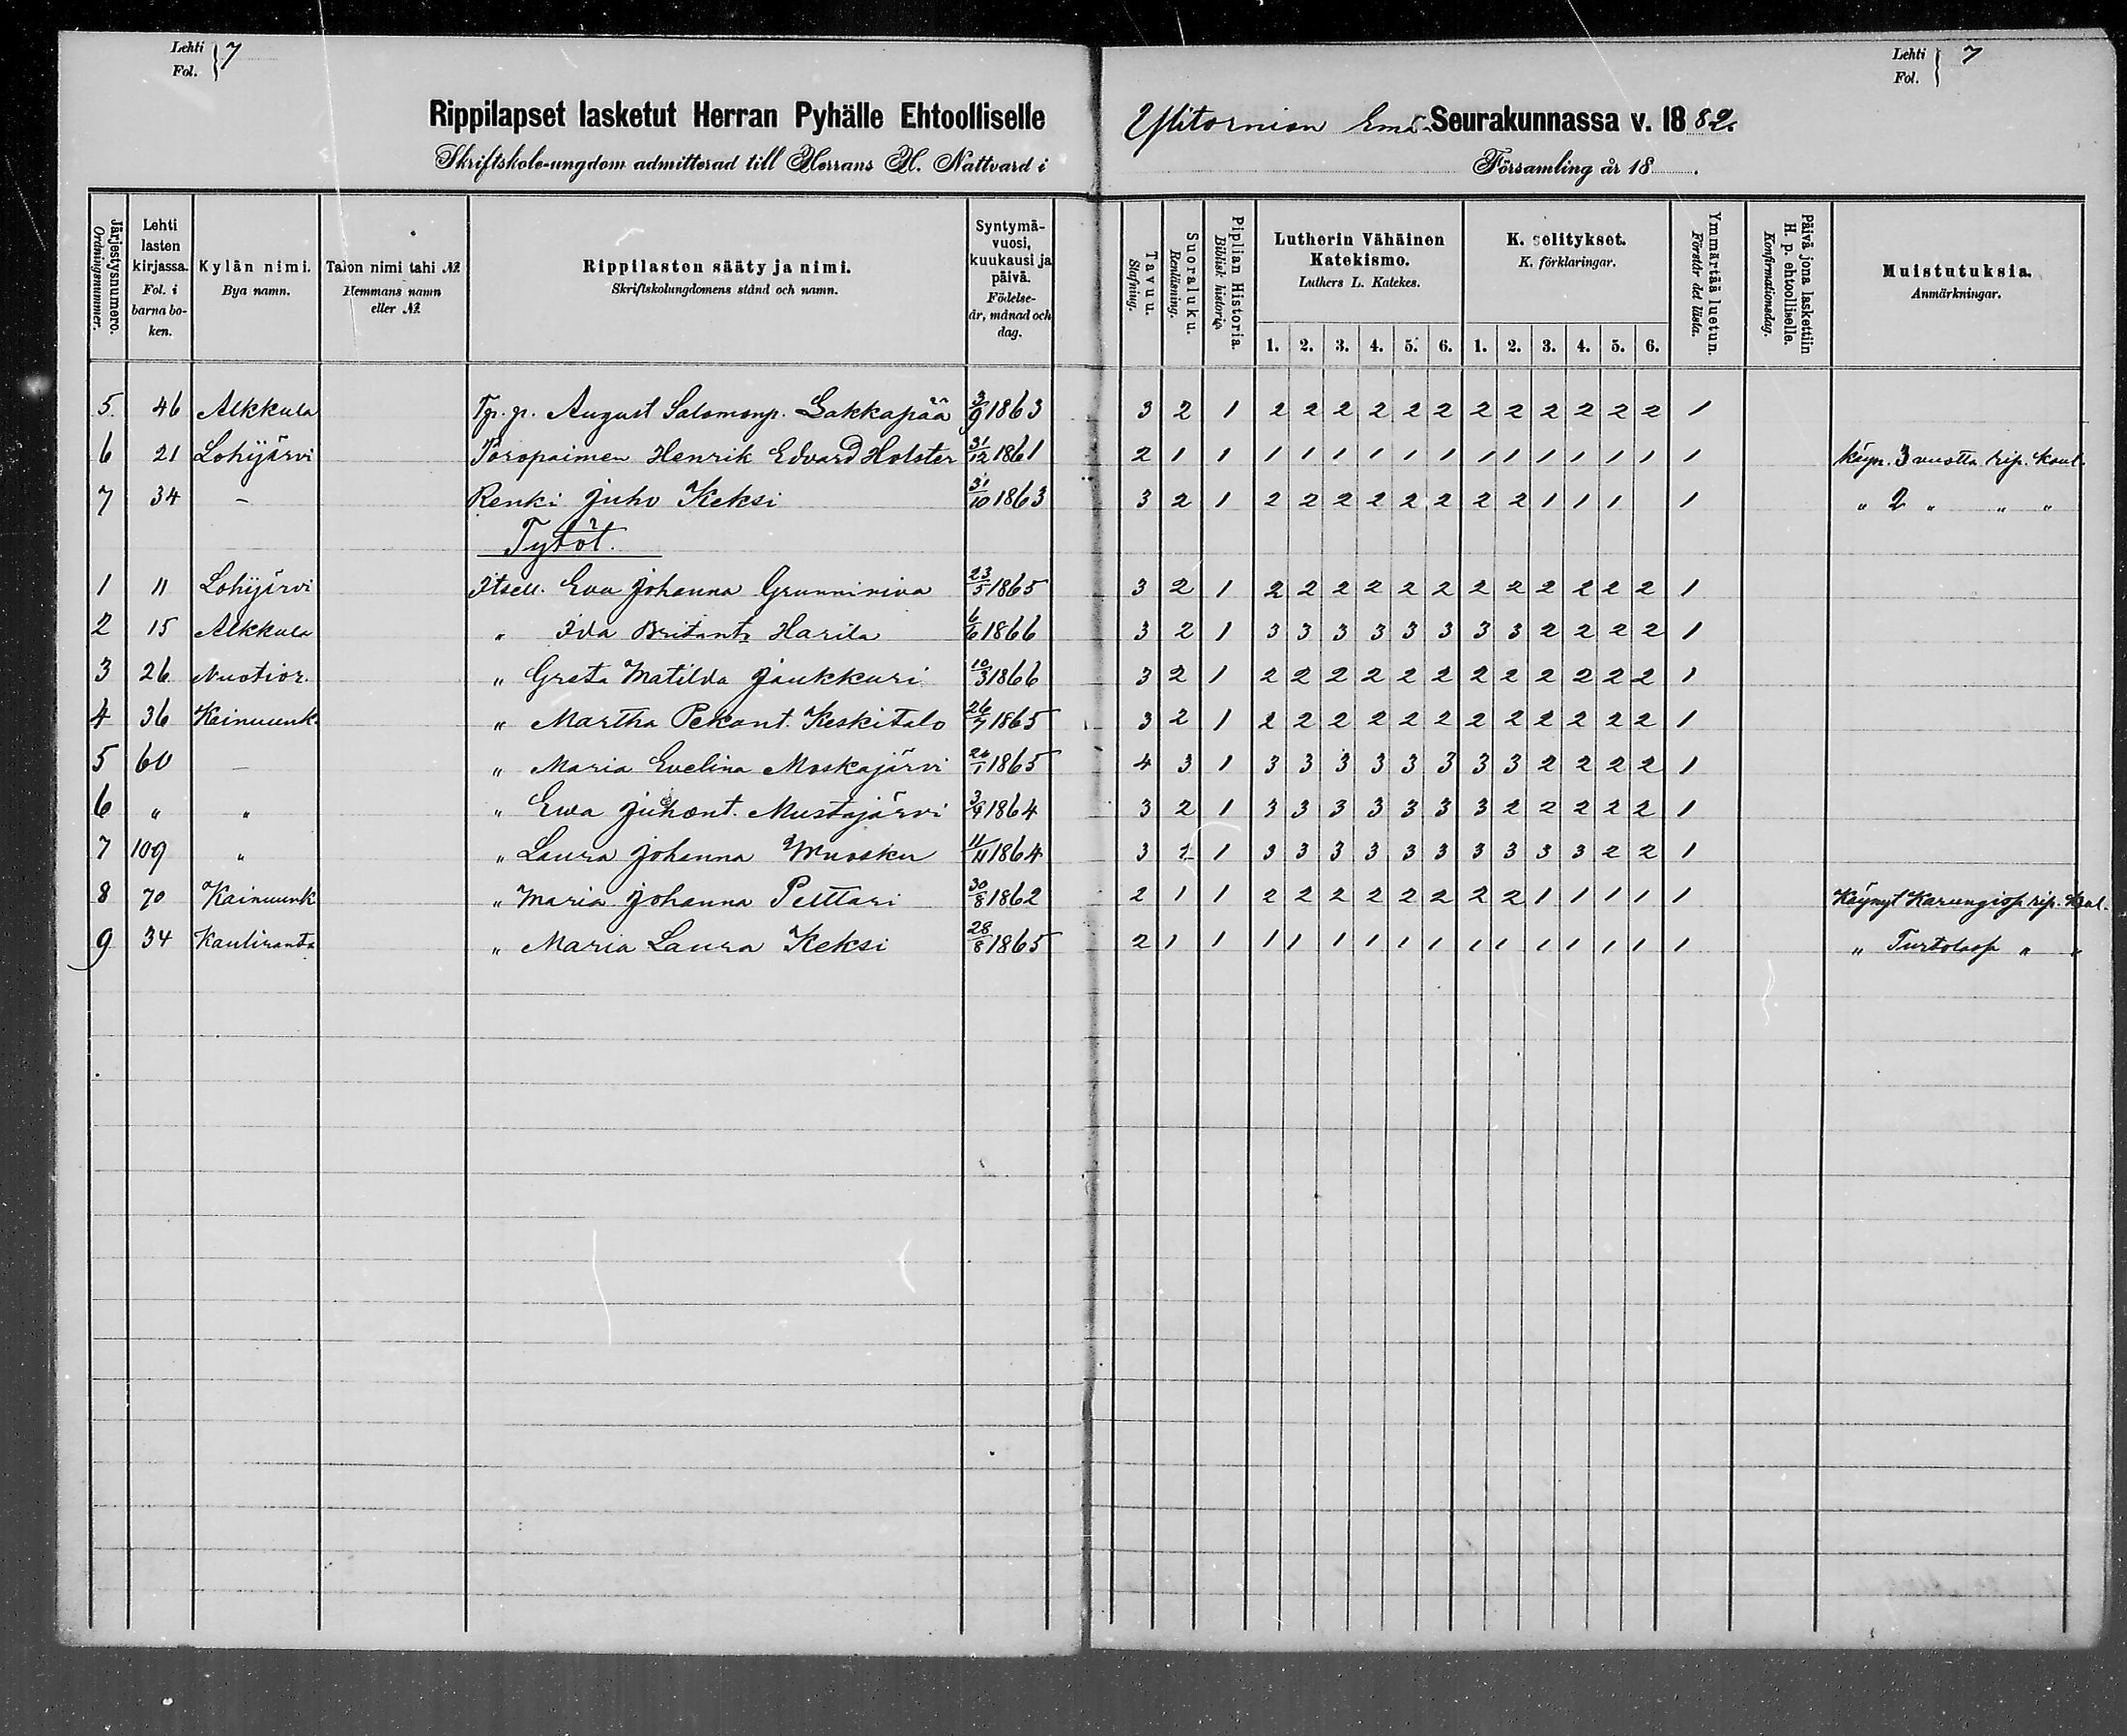 Lehti
Fol. 7
Lehti
Fol. 7
Rippilapset lasketut Herran Pyhälle Ehtoolliselle Ylitornion Emä-Seurakunnassa v. 1882.
Skriftskole-ungdom admitterad till Herrans H. Nattvard i Församling år 18 .
Järjestysnumero. Ordningsnummer.
Lehti lasten kirjassa. Fol. i barna boken.
Kylän nimi. Bya namn.
Talon nimi tahi № Hemmans namn eller №
Rippilasten sääty ja nimi. Skriftskolungdomens stånd och namn.
Syntymävuosi, kuukausi ja päivä. Födelseår, månad och dag.
Tavuu. Stafning.
Suoraluku. Renläsning.
Piplian Historia. Biblisk historia.
Lutherin Vähäinen Katekismo. Luthers L. Katekes.
1. 2. 3. 4. 5. 6.
K. selitykset. K. förklaringar.
1. 2. 3. 4. 5. 6.
Ymmärtää luetun. Förstår det lästa.
Päivä jona laskettiin H. p. ehtoolliselle. Konfirmationsdag.
Muistutuksia. Anmärkningar.
5. 46 Alkkula Tp. p. August Salomonp. Lakkapää 3/9 1863 3 2 1 2 2 2 2 2 2 2 2 2 2 2 2 1
6 21 Lohijärvi Toropainen Henrik Edvard Holster 31/12 1861 2 1 1 1 1 1 1 1 1 1 1 1 1 1 1 1 käyn. 3 vuotta rip. koul.
7 34 – Renki Juho Keksi 31/10 1863 3 2 1 2 2 2 2 2 2 2 2 1 1 1 1 " 2 " " "
Tytöt.
1 11 Lohijärvi Itsell. Eva Johanna Grunniniva 23/5 1865 3 2 1 2 2 2 2 2 2 2 2 2 2 2 2 1
2 15 Alkkula " Ida Britantr Harila 6/6 1866 3 2 1 3 3 3 3 3 3 3 3 2 2 2 2 1
3 26 Nuotior. " Greta Matilda Jaukkuri 10/3 1866 3 2 1 2 2 2 2 2 2 2 2 2 2 2 2 1
4 36 Kainuunk. " Martha Pekant. Keskitalo 26/7 1865 3 2 1 2 2 2 2 2 2 2 2 2 2 2 2 1
5 60 – " Maria Evelina Moskajärvi 24/1 1865 4 3 1 3 3 3 3 3 3 3 3 2 2 2 2 1
6 " " " Ewa Juhont. Mustajärvi 3/9 1864 3 2 1 3 3 3 3 3 3 3 2 2 2 2 2 1
7 109 " " Laura Johanna Wuosku 11/11 1864 3 2 1 3 3 3 3 3 3 3 3 3 3 2 2 1
8 70 Kainuunk " Maria Johanna Pelttari 30/8 1862 2 1 1 2 2 2 2 2 2 2 2 1 1 1 1 1 Käynyt Karungissa rip. koul.
9 34 Kauliranta " Maria Laura Keksi 28/8 1865 2 1 1 1 1 1 1 1 1 1 1 1 1 1 1 1 " Turtolassa " "